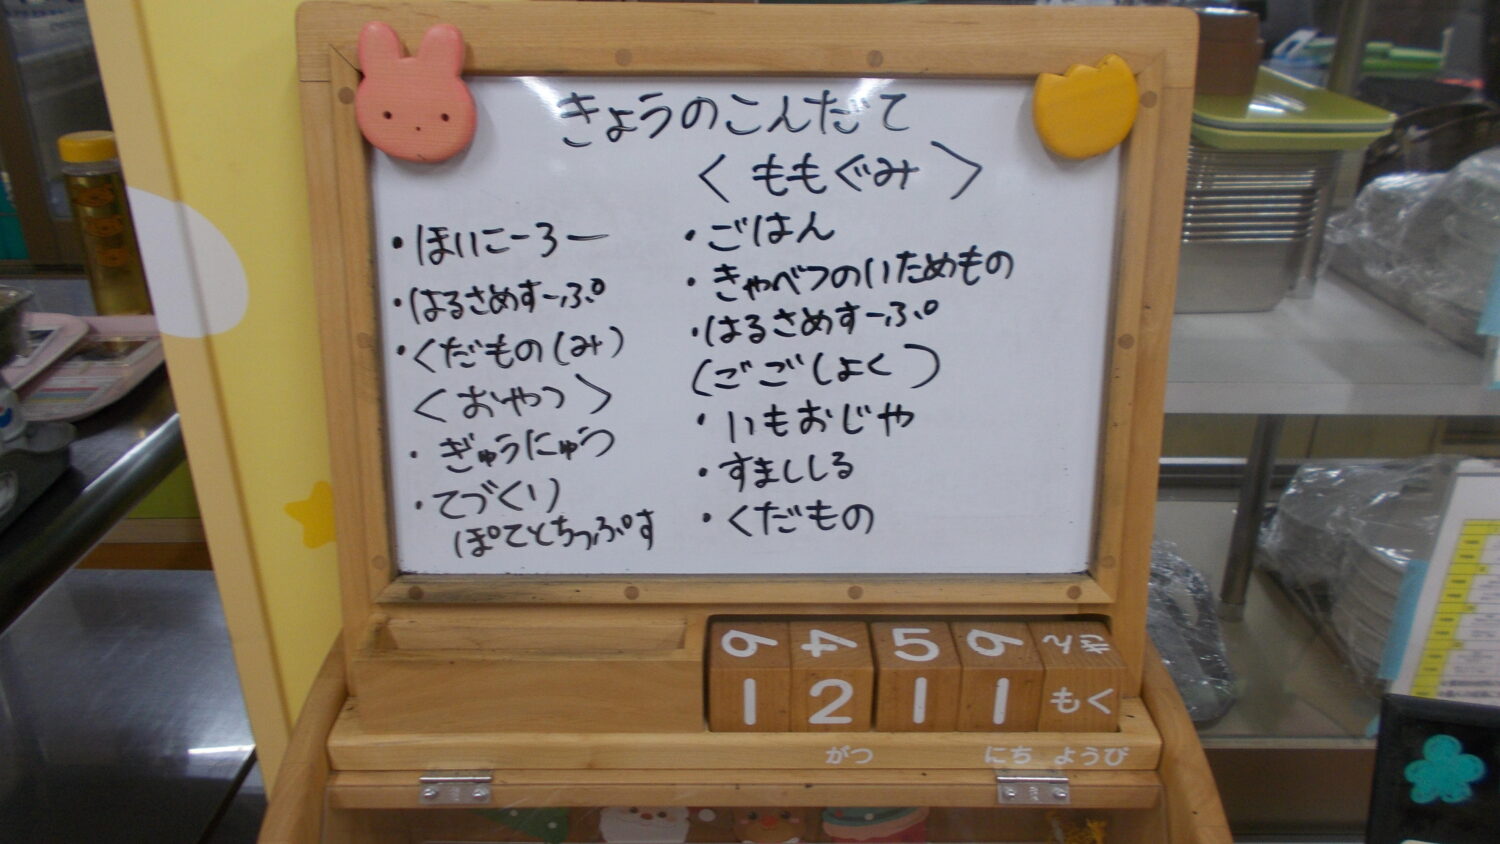 きょうのこんだて
・ほいこーろー
・はるさめすーぷ
・くだもの(み)
<おやつ>
・ぎゅうにゅう
・てづくり
ぽてとちっぷす
<ももぐみ>
・ごはん
・きゃべつのいためもの
・はるさめすーぷ
(ごごしょく)
・いもおじや
・すましじる
・くだもの
6 4 5 6
1 2 1 1 もく
がつ にち ようび